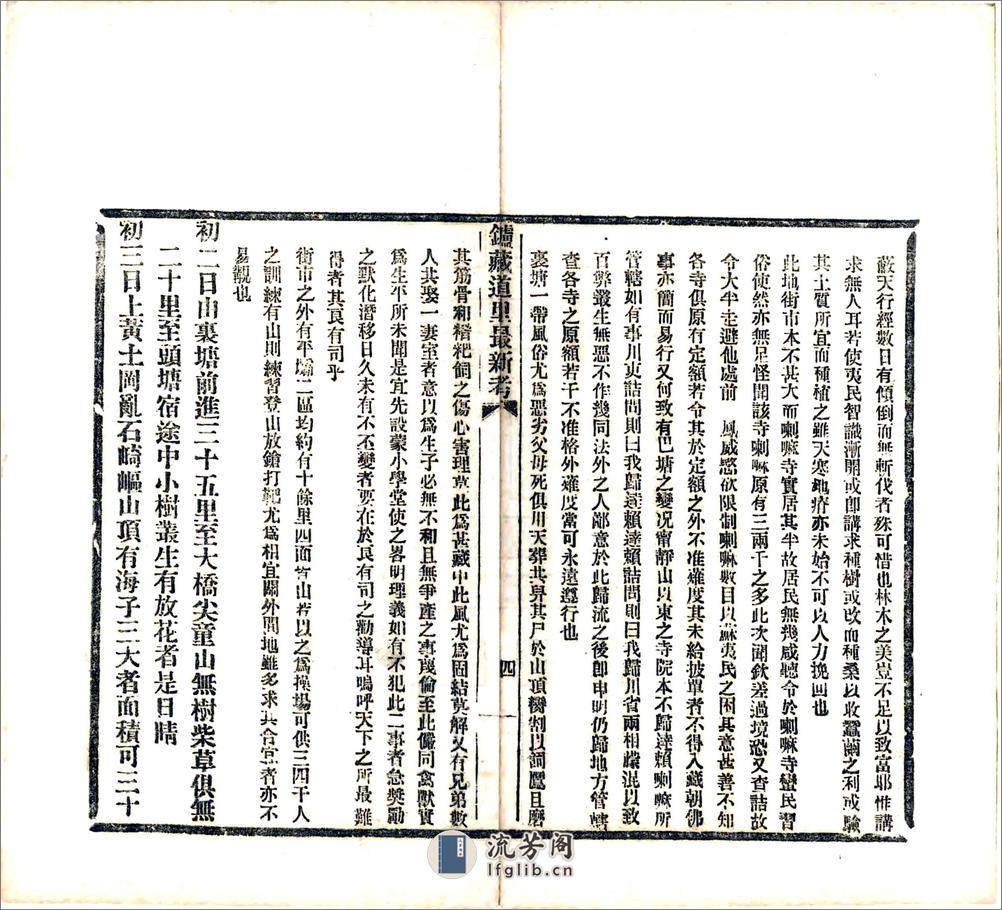 蔽天行經數日有傾倒而無斬伐者殊可惜也林木之美豈不足以致富耶惟講
求無人耳若使夷民智識漸開或卽講求種樹或改而種桑以收蠶繭之利或驗
其土質所宜而種植之雖天寒地瘠亦未始不可以人力挽回也
此地街市本不甚大而喇嘛寺實居其半故居民無幾咸聽令於喇嘛寺蠻民習
俗使然亦無足怪聞該寺喇嘛原有三兩千之多此次聞欽差過境恐又查詰故
令大半走避他處前 鳳威愍欲限制喇嘛數目以蘇夷民之困其意甚善不知
各寺俱原有定額若令其於定額之外不准薙度其未給披單者不得入藏朝佛
事亦簡而易行又何致有巴塘之變况甯靜山以東之寺院本不歸達賴喇嘛所
管轄如有事川吏詰問則曰我歸達賴達賴詰問則曰我歸川省兩相朦混以致
百弊叢生無惡不作幾同法外之人鄙意於此歸流之後卽申明仍歸地方管轄
查各寺之原額若干不准格外薙度當可永遠遵行也
裏塘一帶風俗尤爲惡劣父母死俱用天葬其舁其尸於山頂臠割以飼鷹且磨
鑪藏道里最新考
四
其筋骨和糌粑飼之傷心害理莫此爲甚藏中此風尤爲固結莫解又有兄弟數
人共娶一妻室者意以爲生子必無不和且無爭產之事蔑倫至此儼同禽獸實
爲生平所未聞是宜先設蒙小學堂使之畧明理義如有不犯此二事者急奬勵
之默化潛移日久未有不丕變者要在於良有司之勸導耳嗚呼天下之所最難
得者其良有司乎
街市之外有平壩二區均約有十餘里四面皆山若以之爲操場可供三四千人
之訓練有山則練習登山放鎗打靶尤爲相宜關外閒地雖多求其合宜者亦不
易觀也
初二日由裏塘前進三十五里至大橋尖童山無樹柴草俱無
二十里至頭塘宿途中小樹叢生有放花者是日晴
初三日上黃土岡亂石崎嶇山頂有海子三大者面積可三十
流芳阁
lfglib.cn